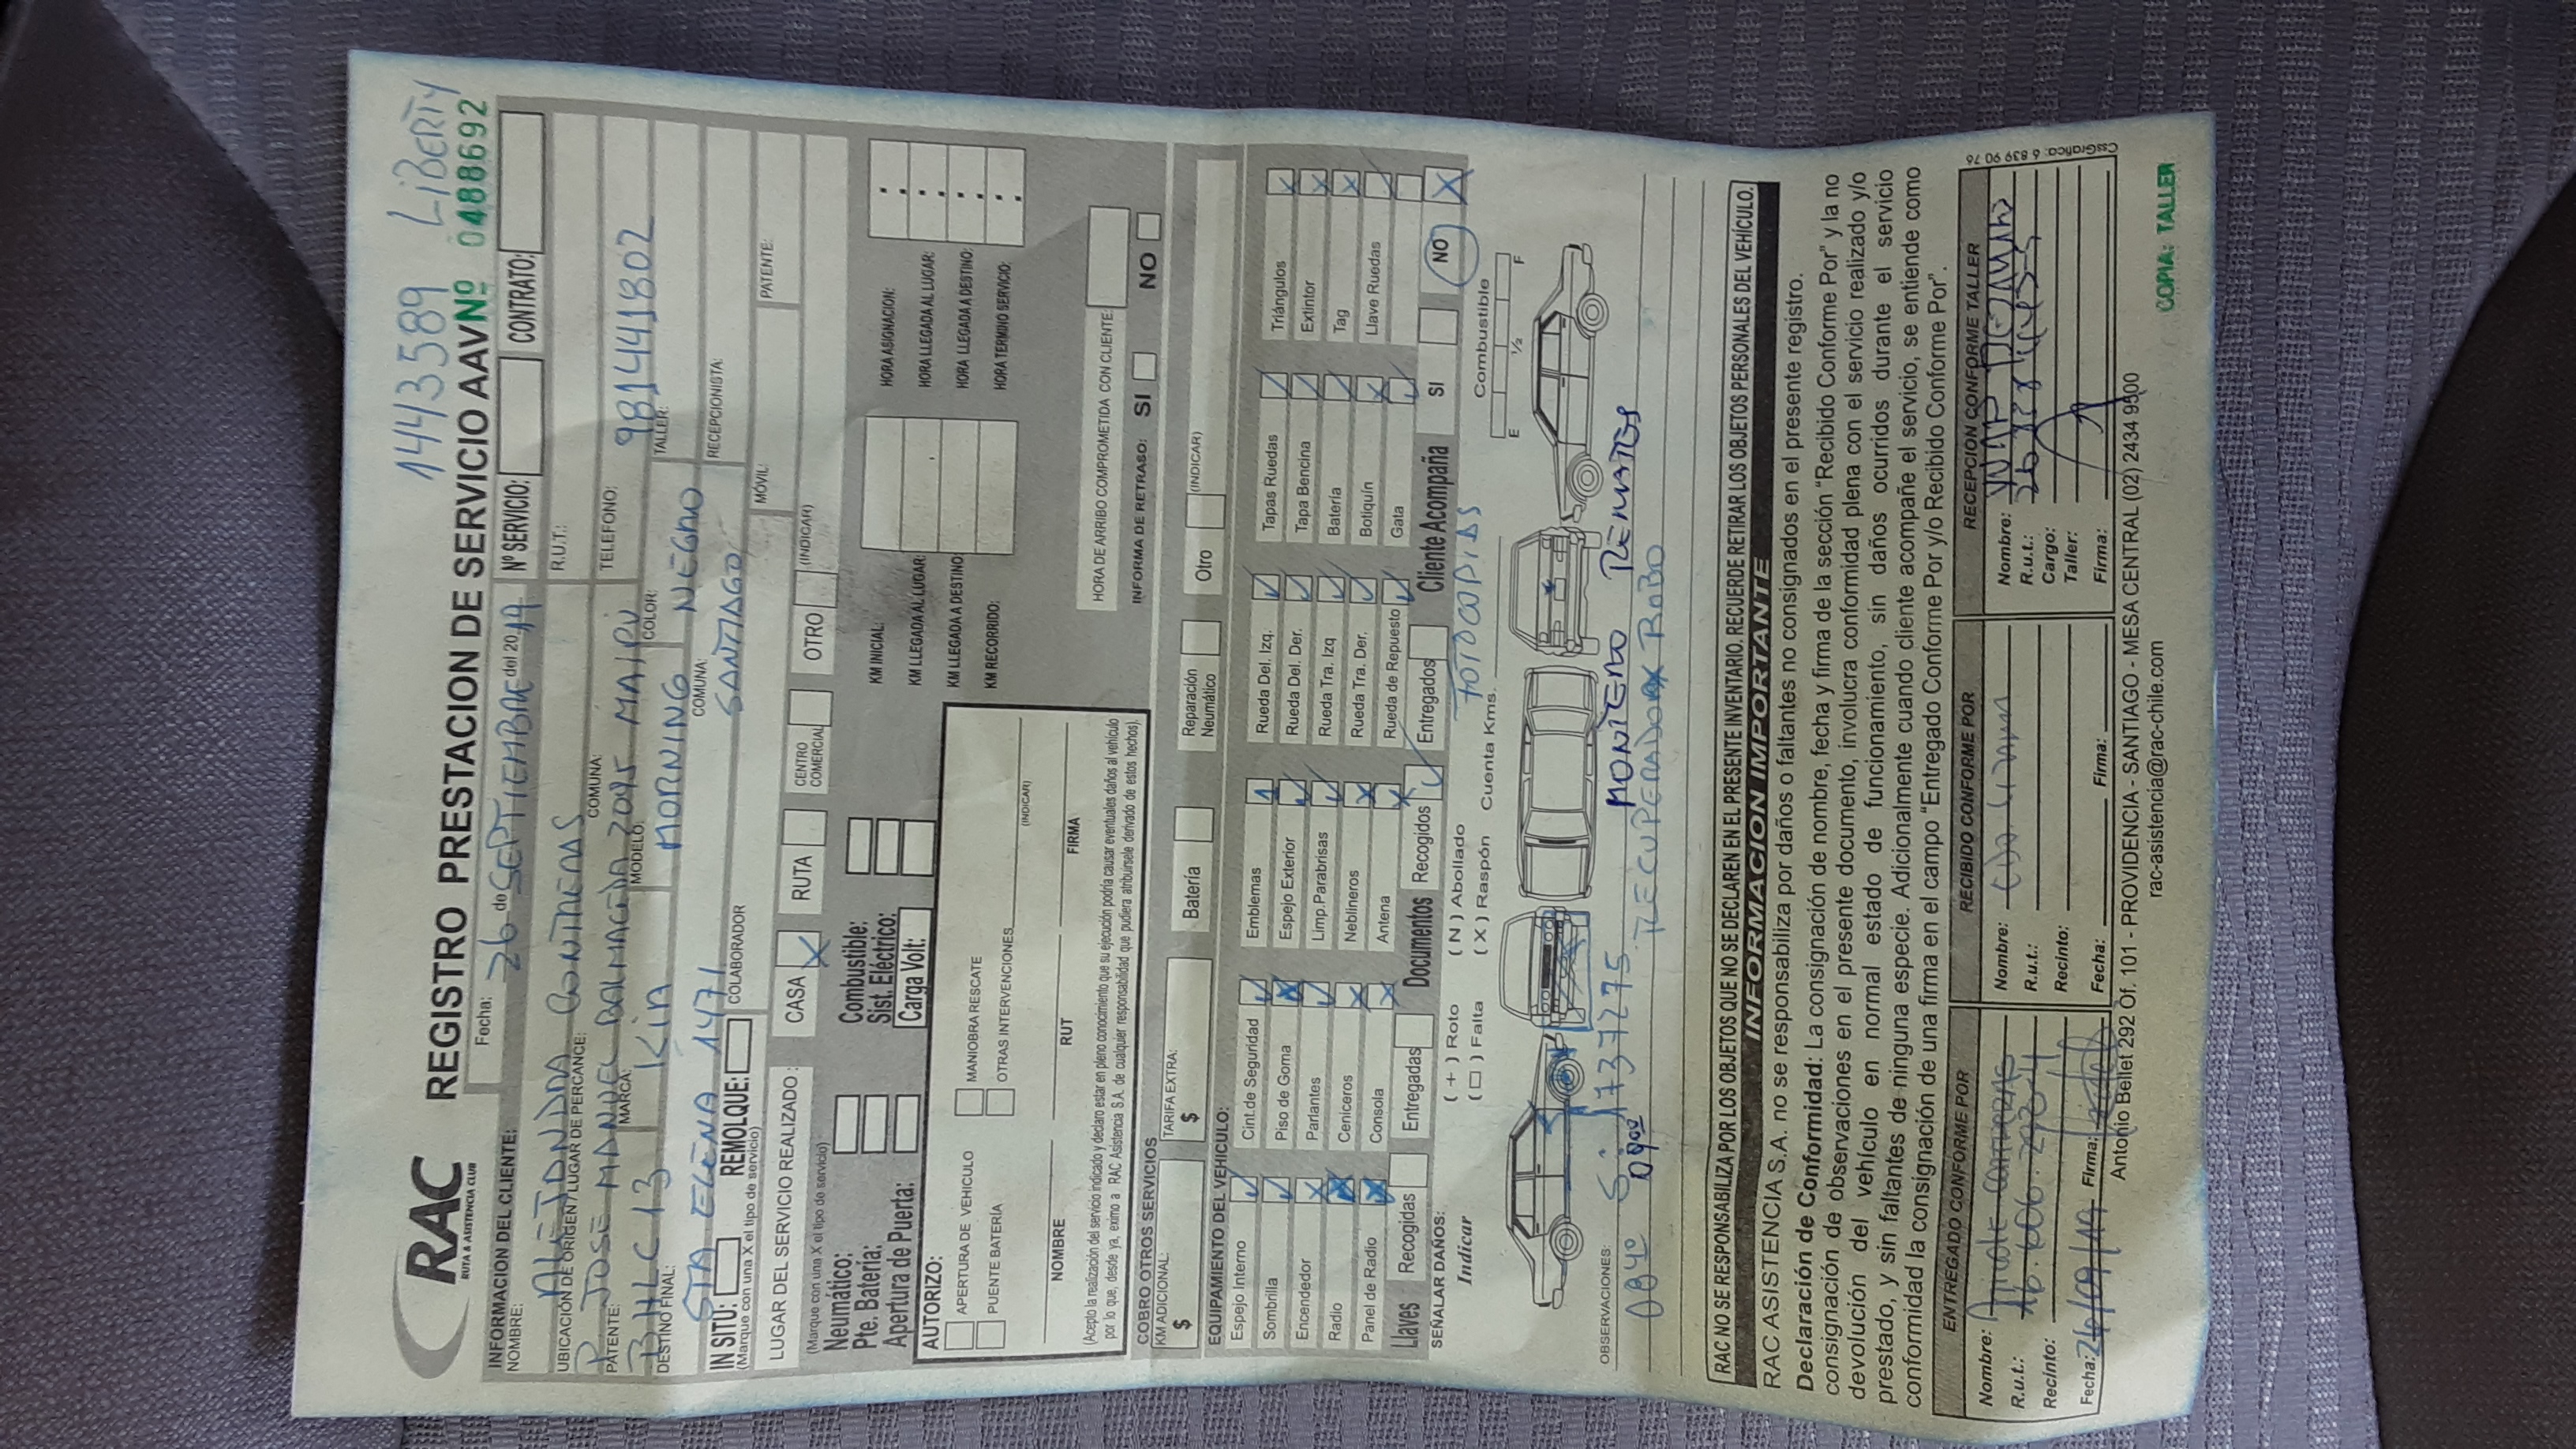 1443589 LIBERTY
RAC
RUTA & ASISTENCIA CLUB
REGISTRO PRESTACION DE SERVICIO AAV Nº 0488692
INFORMACION DEL CLIENTE:
Fecha: 26 de SEPTIEMBRE del 2019
Nº SERVICIO:
CONTRATO:
NOMBRE: ALEJANDRA CONTRERAS
R.U.T.:
UBICACIÓN DE ORIGEN / LUGAR DE PERCANCE: P JOSE MANUEL BALMACEDA 2045 MAIPU
COMUNA:
TELEFONO: 981441802
PATENTE: BHLC13
MARCA: KIA
MODELO: MORNING
COLOR: NEGRO
TALLER:
DESTINO FINAL: STA ELENA 1471
COMUNA: SANTIAGO
RECEPCIONISTA:
IN SITU:
REMOLQUE:
(Marque con una X el tipo de servicio)
COLABORADOR
MÓVIL:
PATENTE:
LUGAR DEL SERVICIO REALIZADO:
CASA X
RUTA
CENTRO COMERCIAL
OTRO
(INDICAR)
(Marque con una X el tipo de servicio)
Neumático:
Combustible:
Pte. Batería:
Sist. Eléctrico:
Apertura de Puerta:
Carga Volt:
KM INICIAL:
KM LLEGADA AL LUGAR:
KM LLEGADA A DESTINO
KM RECORRIDO:
HORA ASIGNACION:
HORA LLEGADA AL LUGAR:
HORA LLEGADA A DESTINO:
HORA TERMINO SERVICIO:
AUTORIZO:
APERTURA DE VEHICULO
MANIOBRA RESCATE
PUENTE BATERÍA
OTRAS INTERVENCIONES
(INDICAR)
NOMBRE
RUT
FIRMA
(Acepto la realización del servicio indicado y declaro estar en pleno conocimiento que su ejecución podría causar eventuales daños al vehículo
por lo que, desde ya, eximo a RAC Asistencia S.A. de cualquier responsabilidad que pudiera atribuírsele derivado de estos hechos).
HORA DE ARRIBO COMPROMETIDA CON CLIENTE:
INFORMA DE RETRASO: SI NO
COBRO OTROS SERVICIOS
KM ADICIONAL:
$
TARIFA EXTRA:
$
Batería
Reparación Neumático
Otro
(INDICAR)
EQUIPAMIENTO DEL VEHICULO:
Espejo Interno
Cint.de Seguridad
Emblemas
Rueda Del. Izq.
Tapas Ruedas
Triángulos
Sombrilla
Piso de Goma
Espejo Exterior
Rueda Del. Der.
Tapa Bencina
Extintor
Encendedor
Parlantes
Limp.Parabrisas
Rueda Tra. Izq
Batería
Tag
Radio
Ceniceros
Neblineros
Rueda Tra. Der.
Botiquín
Llave Ruedas
Panel de Radio
Consola
Antena
Rueda de Repuesto
Gata
Llaves Recogidas Entregadas Documentos Recogidos Entregados Cliente Acompaña SI NO X
FOTOCOPIAS
SEÑALAR DAÑOS:
Indicar
( + ) Roto ( N ) Abollado
( □ ) Falta ( X ) Raspón
Cuenta Kms.
Combustible
E 1/2 F
OBSERVACIONES:
S: 17377275. MONTERO REMATES
RECUPERADO X ROBO
RAC NO SE RESPONSABILIZA POR LOS OBJETOS QUE NO SE DECLAREN EN EL PRESENTE INVENTARIO. RECUERDE RETIRAR LOS OBJETOS PERSONALES DEL VEHÍCULO.
INFORMACION IMPORTANTE
RAC ASISTENCIA S.A. no se responsabiliza por daños o faltantes no consignados en el presente registro.
Declaración de Conformidad: La consignación de nombre, fecha y firma de la sección "Recibido Conforme Por" y la no
consignación de observaciones en el presente documento, involucra conformidad plena con el servicio realizado y/o
devolución del vehículo en normal estado de funcionamiento, sin daños ocurridos durante el servicio
prestado, y sin faltantes de ninguna especie. Adicionalmente cuando cliente acompañe el servicio, se entiende como
conformidad la consignación de una firma en el campo "Entregado Conforme Por y/o Recibido Conforme Por".
ENTREGADO CONFORME POR
Nombre:
R.u.t.:
Recinto:
Fecha: 26/09/19 Firma:
RECIBIDO CONFORME POR
Nombre:
R.u.t.:
Recinto:
Fecha: Firma:
RECEPCION CONFORME TALLER
Nombre:
R.u.t.:
Cargo:
Taller:
Firma:
CssGrafica: 6 839 90 76
Antonio Bellet 292 Of. 101 - PROVIDENCIA - SANTIAGO - MESA CENTRAL (02) 2434 9500
rac-asistencia@rac-chile.com
COPIA: TALLER